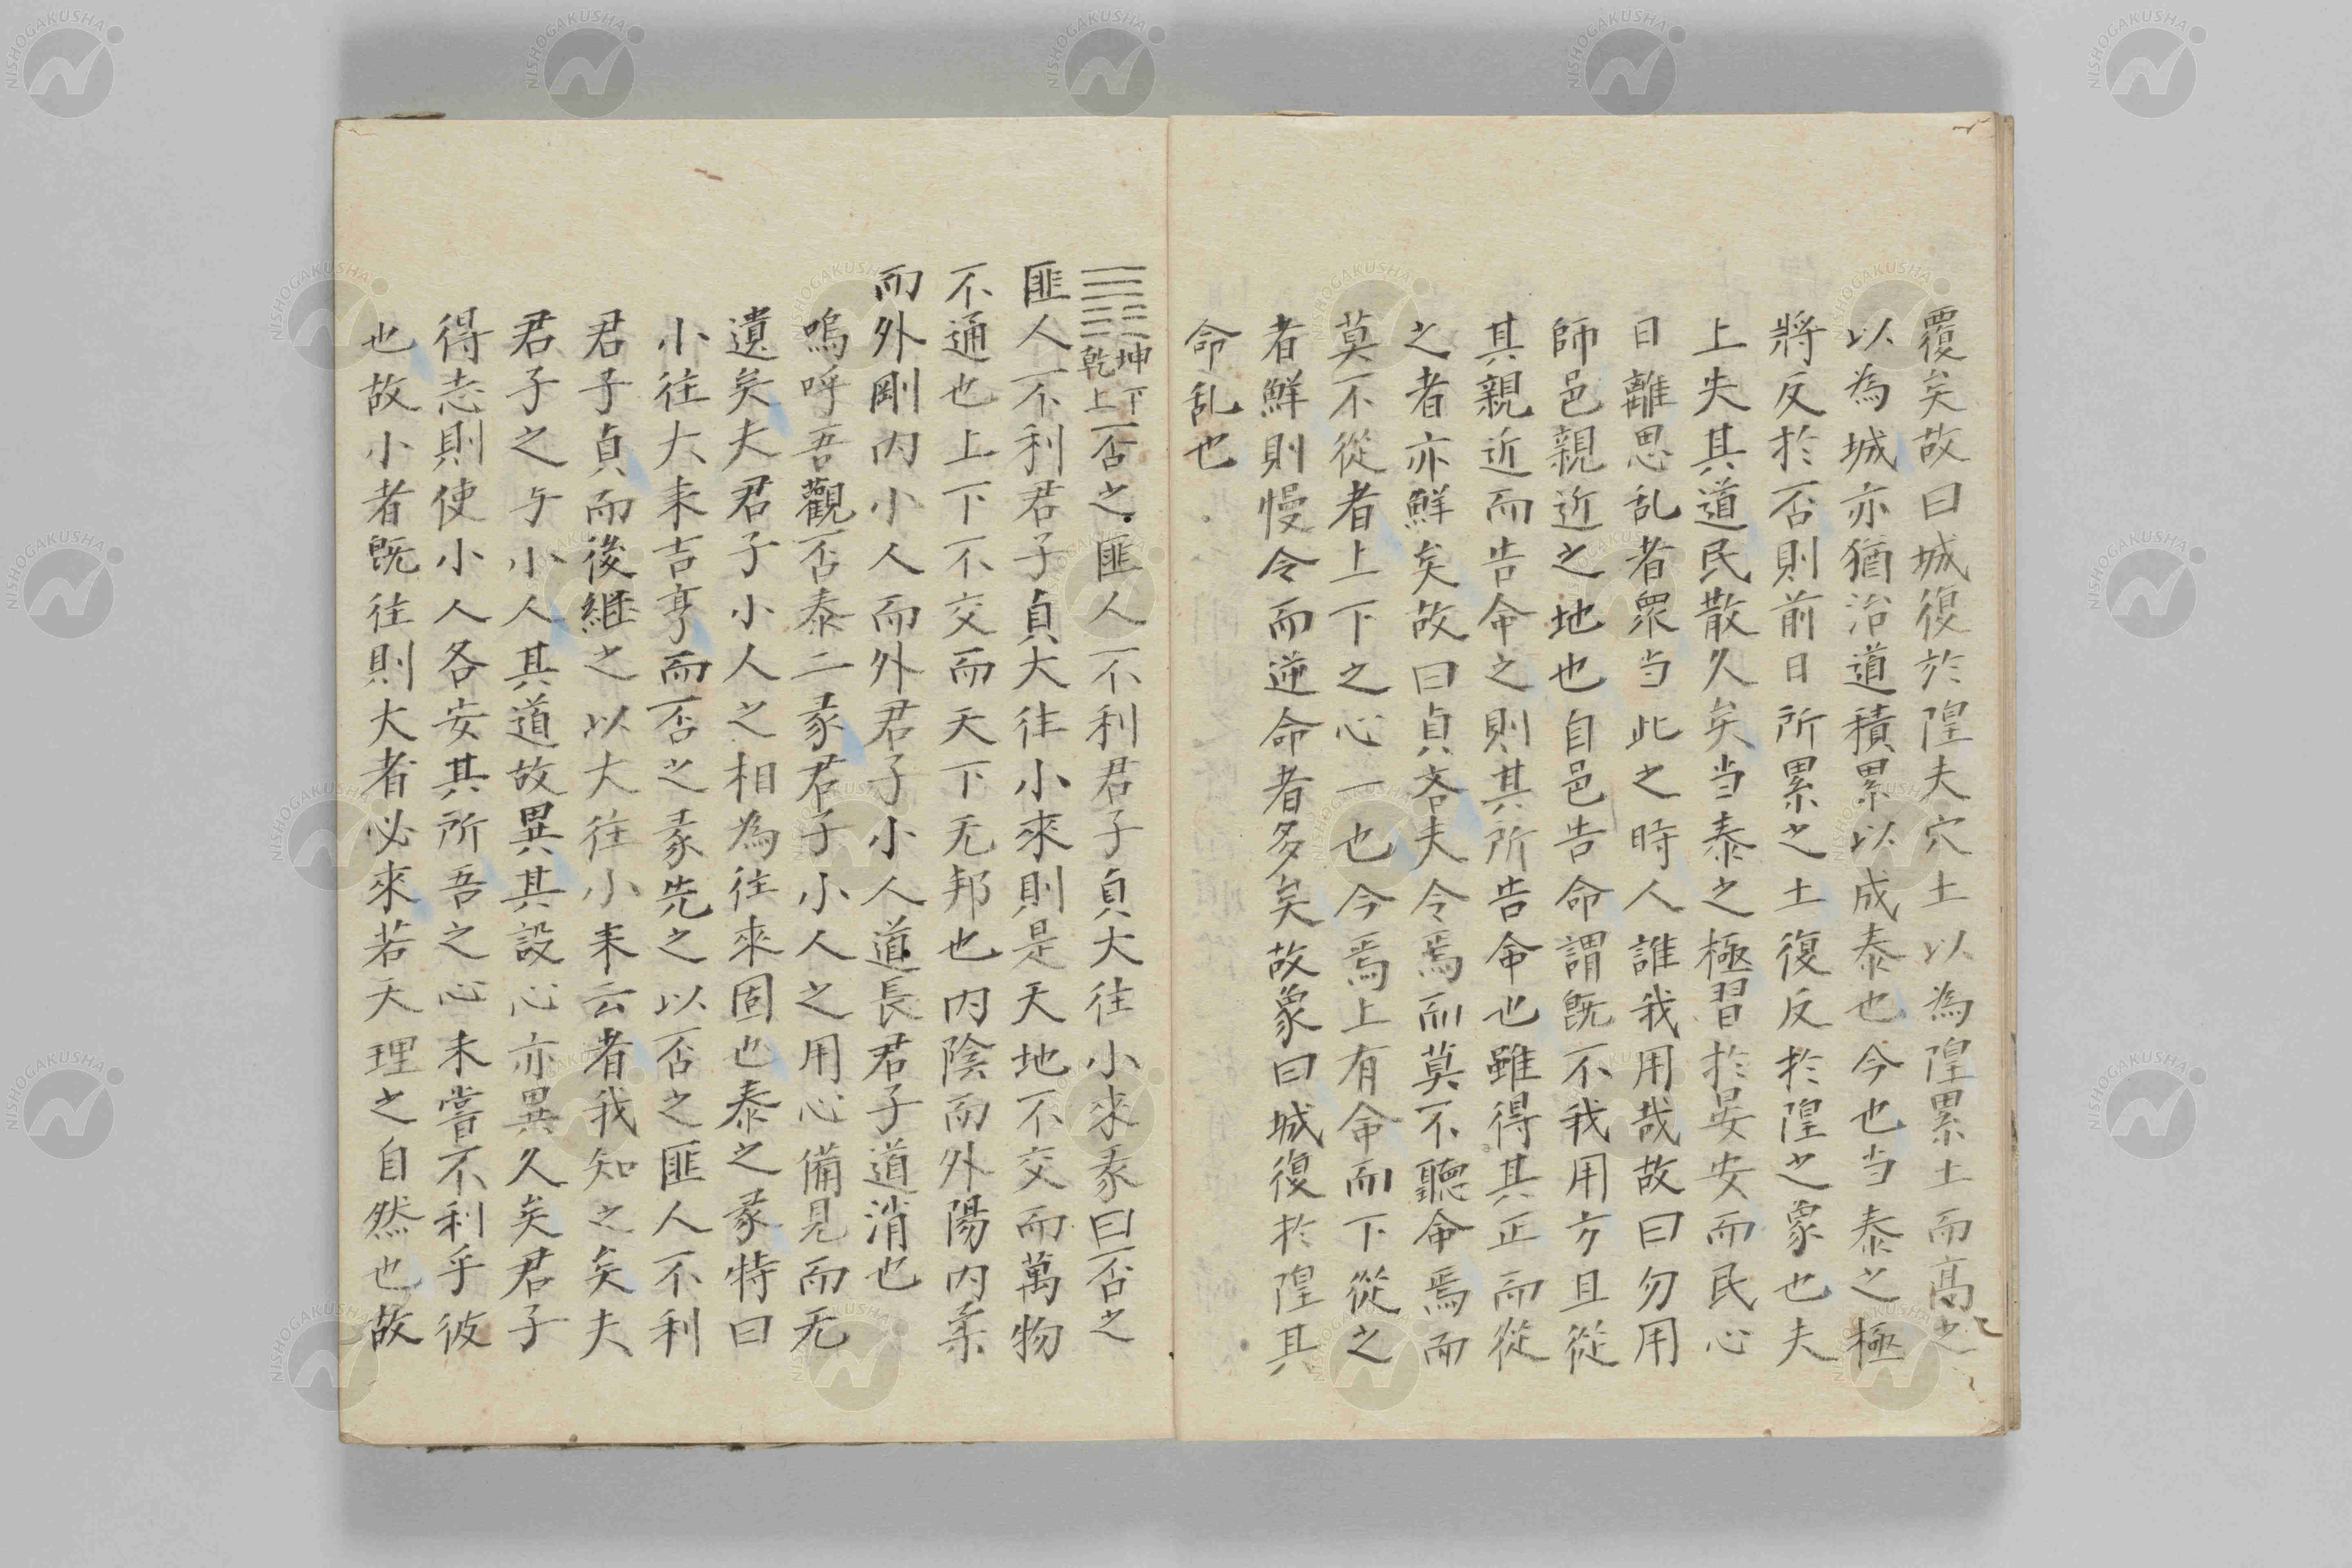 覆矣故曰城復於隍夫穴土以為隍累土而髙之
以為城亦猶治道積累以成泰也今也当泰之極
將反於否則前日所累之土復反於隍之象也夫
上失其道民散久矣当泰之極習於晏安而民心
日離思乱者衆当此之時人誰我用哉故曰勿用
師邑親近之地也自邑告命謂既不我用方且從
其親近而告命之則其所告命也雖得其正而從
之者亦鮮矣故曰貞吝夫令焉而莫不聽命焉而
莫不從者上下之心一也今焉上有命而下從之
者鮮則慢令而逆命者多矣故象曰城復於隍其
命乱也
坤下乾上否之匪人不利君子貞大往小來彖曰否之
匪人不利君子貞大往小來則是天地不交而萬物
不通也上下不交而天下无邦也内陰而外陽内柔
而外剛内小人而外君子小人道長君子道消也
嗚呼吾觀否泰二彖君子小人之用心備見而无
遺矣夫君子小人之相為往來固也泰之彖特曰
小往大来吉亨而否之彖先之以否之匪人不利
君子貞而後継之以大往小来云者我知之矣夫
君子之与小人其道故異其設心亦異久矣君子
得志則使小人各安其所吾之心未嘗不利乎彼
也故小者既往則大者必來若天理之自然也故
NISHOGAKUSHA